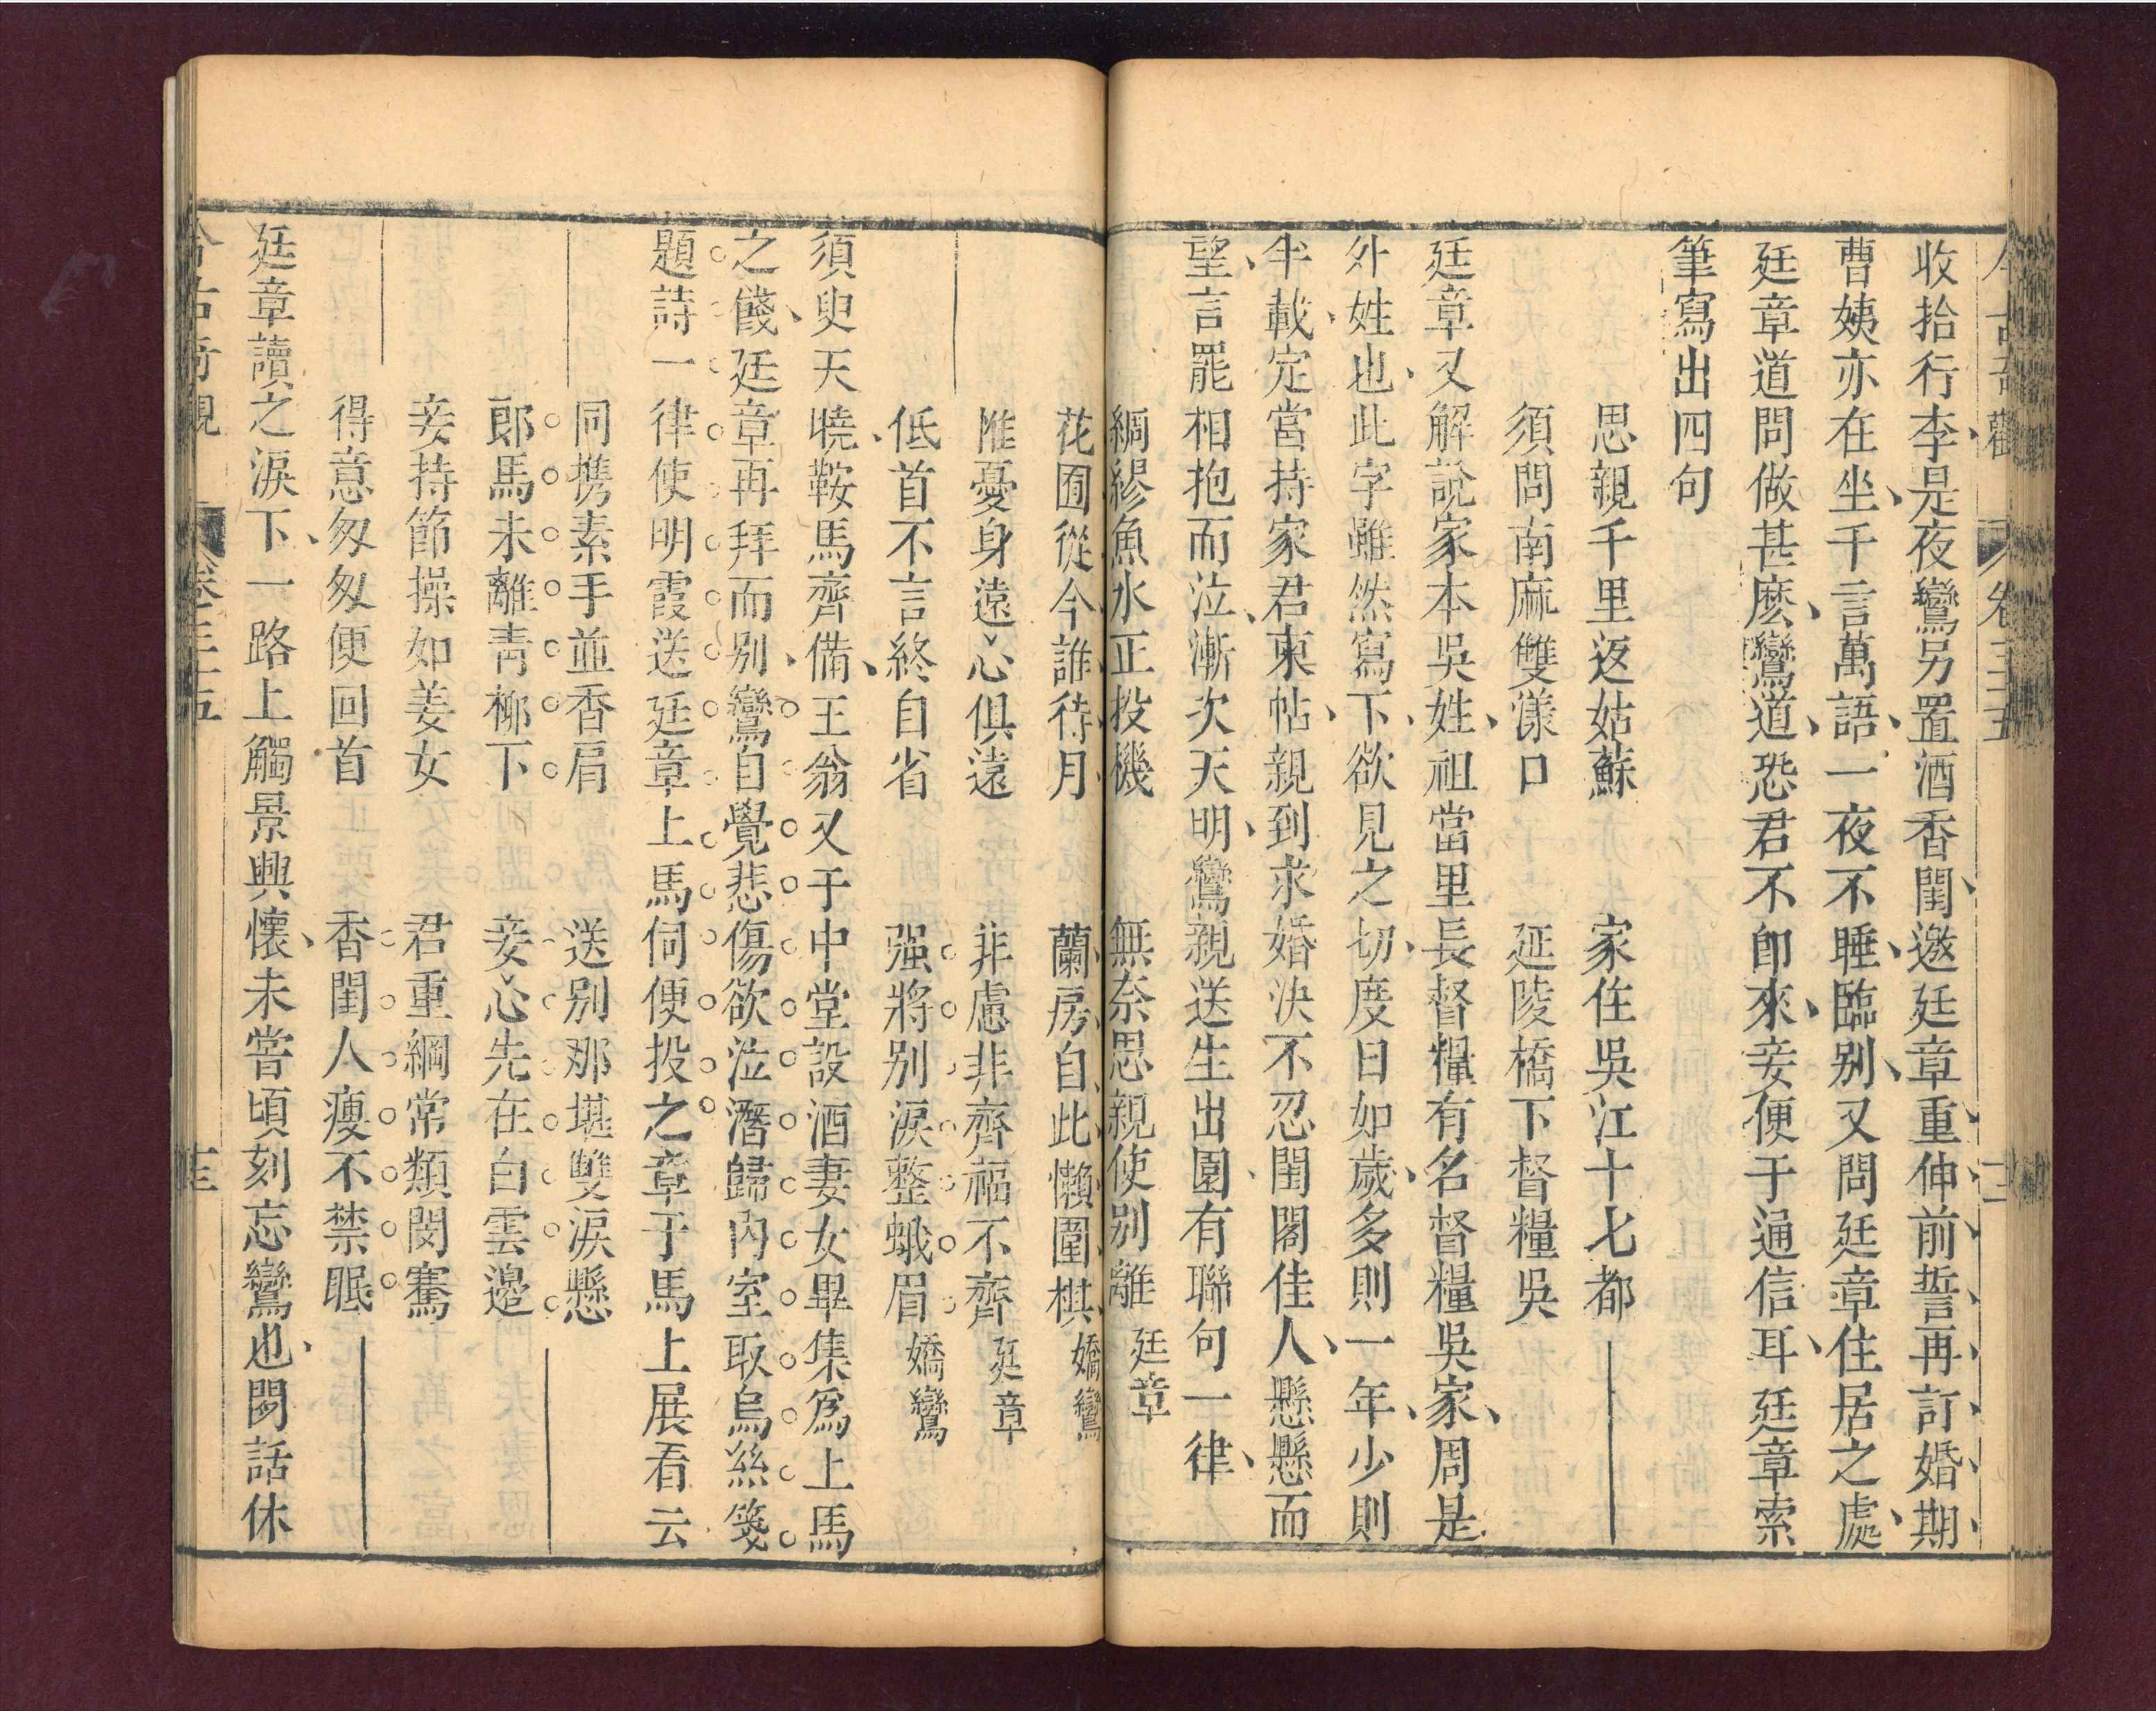 今古奇觀 卷三十五 十二
收拾行李是夜鸞另置酒香閨邀廷章重伸前誓再訂婚期
曹姨亦在坐千言萬語一夜不睡臨别又問廷章住居之處
廷章道問做甚麽鸞道恐君不卽來妾便于通信耳廷章索
筆寫出四句
思親千里返姑蘇 家住吳江十七都
須問南麻雙漾口 延陵橋下督糧吳
廷章又解說家本吳姓祖當里長督糧有名督糧吳家周是
外姓也此字雖然寫下欲見之切度日如歲多則一年少則
半載定當持家君柬帖親到求婚決不忍閨閣佳人懸懸而
望言罷相抱而泣漸次天明鸞親送生出園有聯句一律
綢繆魚水正投機 無奈思親使别離 廷章
花囿從今誰待月 蘭房自此懶圍棋 嬌鸞
惟憂身遠心俱遠 非慮非齊福不齊 廷章
低首不言終自省 强將别淚整蛾眉 嬌鸞
須臾天曉鞍馬齊備王翁又于中堂設酒妻女畢集爲上馬
之餞廷章再拜而别鸞自覺悲傷欲泣潛歸內室取烏絲箋
題詩一律使明霞送廷章上馬伺便投之章于馬上展看云
同携素手並香肩 送别那堪雙淚懸
郎馬未離青柳下 妾心先在白雲邊
妾持節操如姜女 君重綱常類閔騫
得意匆匆便回首 香閨人瘦不禁眠
廷章讀之淚下一路上觸景興懷未嘗頃刻忘鸞也閒話休
今古奇觀 卷三十五